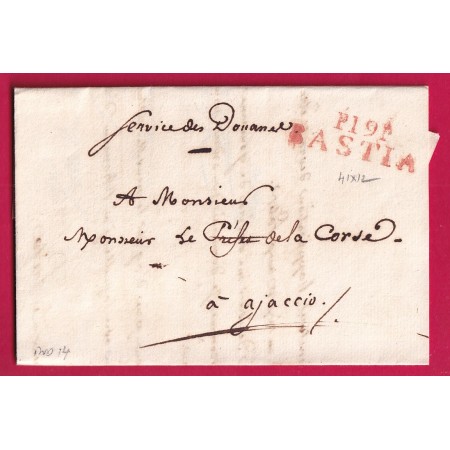 Service des Douanes
P19P
BASTIA
41X12
A Monsieur
Monsieur Le Préfet de la Corse.
à ajaccio